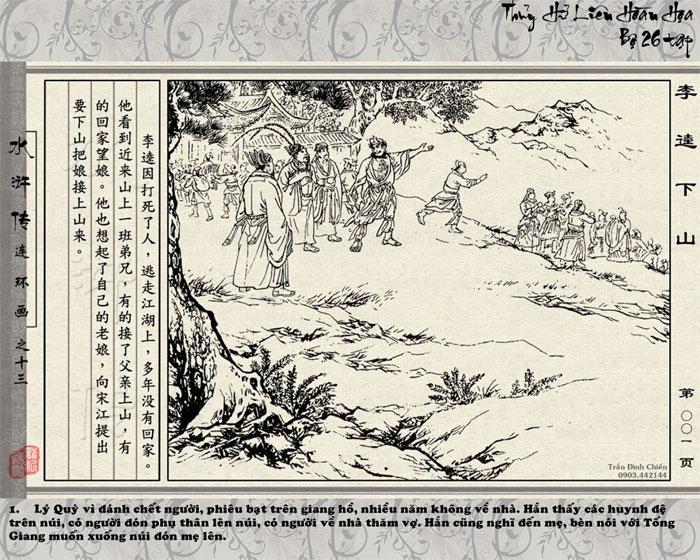 Thủy Hử Liên Hoàn Họa
Bộ 26 tập
李逵下山
第〇〇一页
李逵因打死了人，逃走江湖上，多年没有回家。
他看到近来山上一班弟兄，有的接了父亲上山，有
的回家望娘。他也想起了自己的老娘，向宋江提出
要下山把娘接上山来。
水浒传连环画之十三
Trần Đình Chiến
0903.442144
1. Lý Quỳ vì đánh chết người, phiêu bạt trên giang hồ, nhiều năm không về nhà. Hắn thấy các huynh đệ
trên núi, có người đón phụ thân lên núi, có người về nhà thăm vợ. Hắn cũng nghĩ đến mẹ, bèn nói với Tống
Giang muốn xuống núi đón mẹ lên.